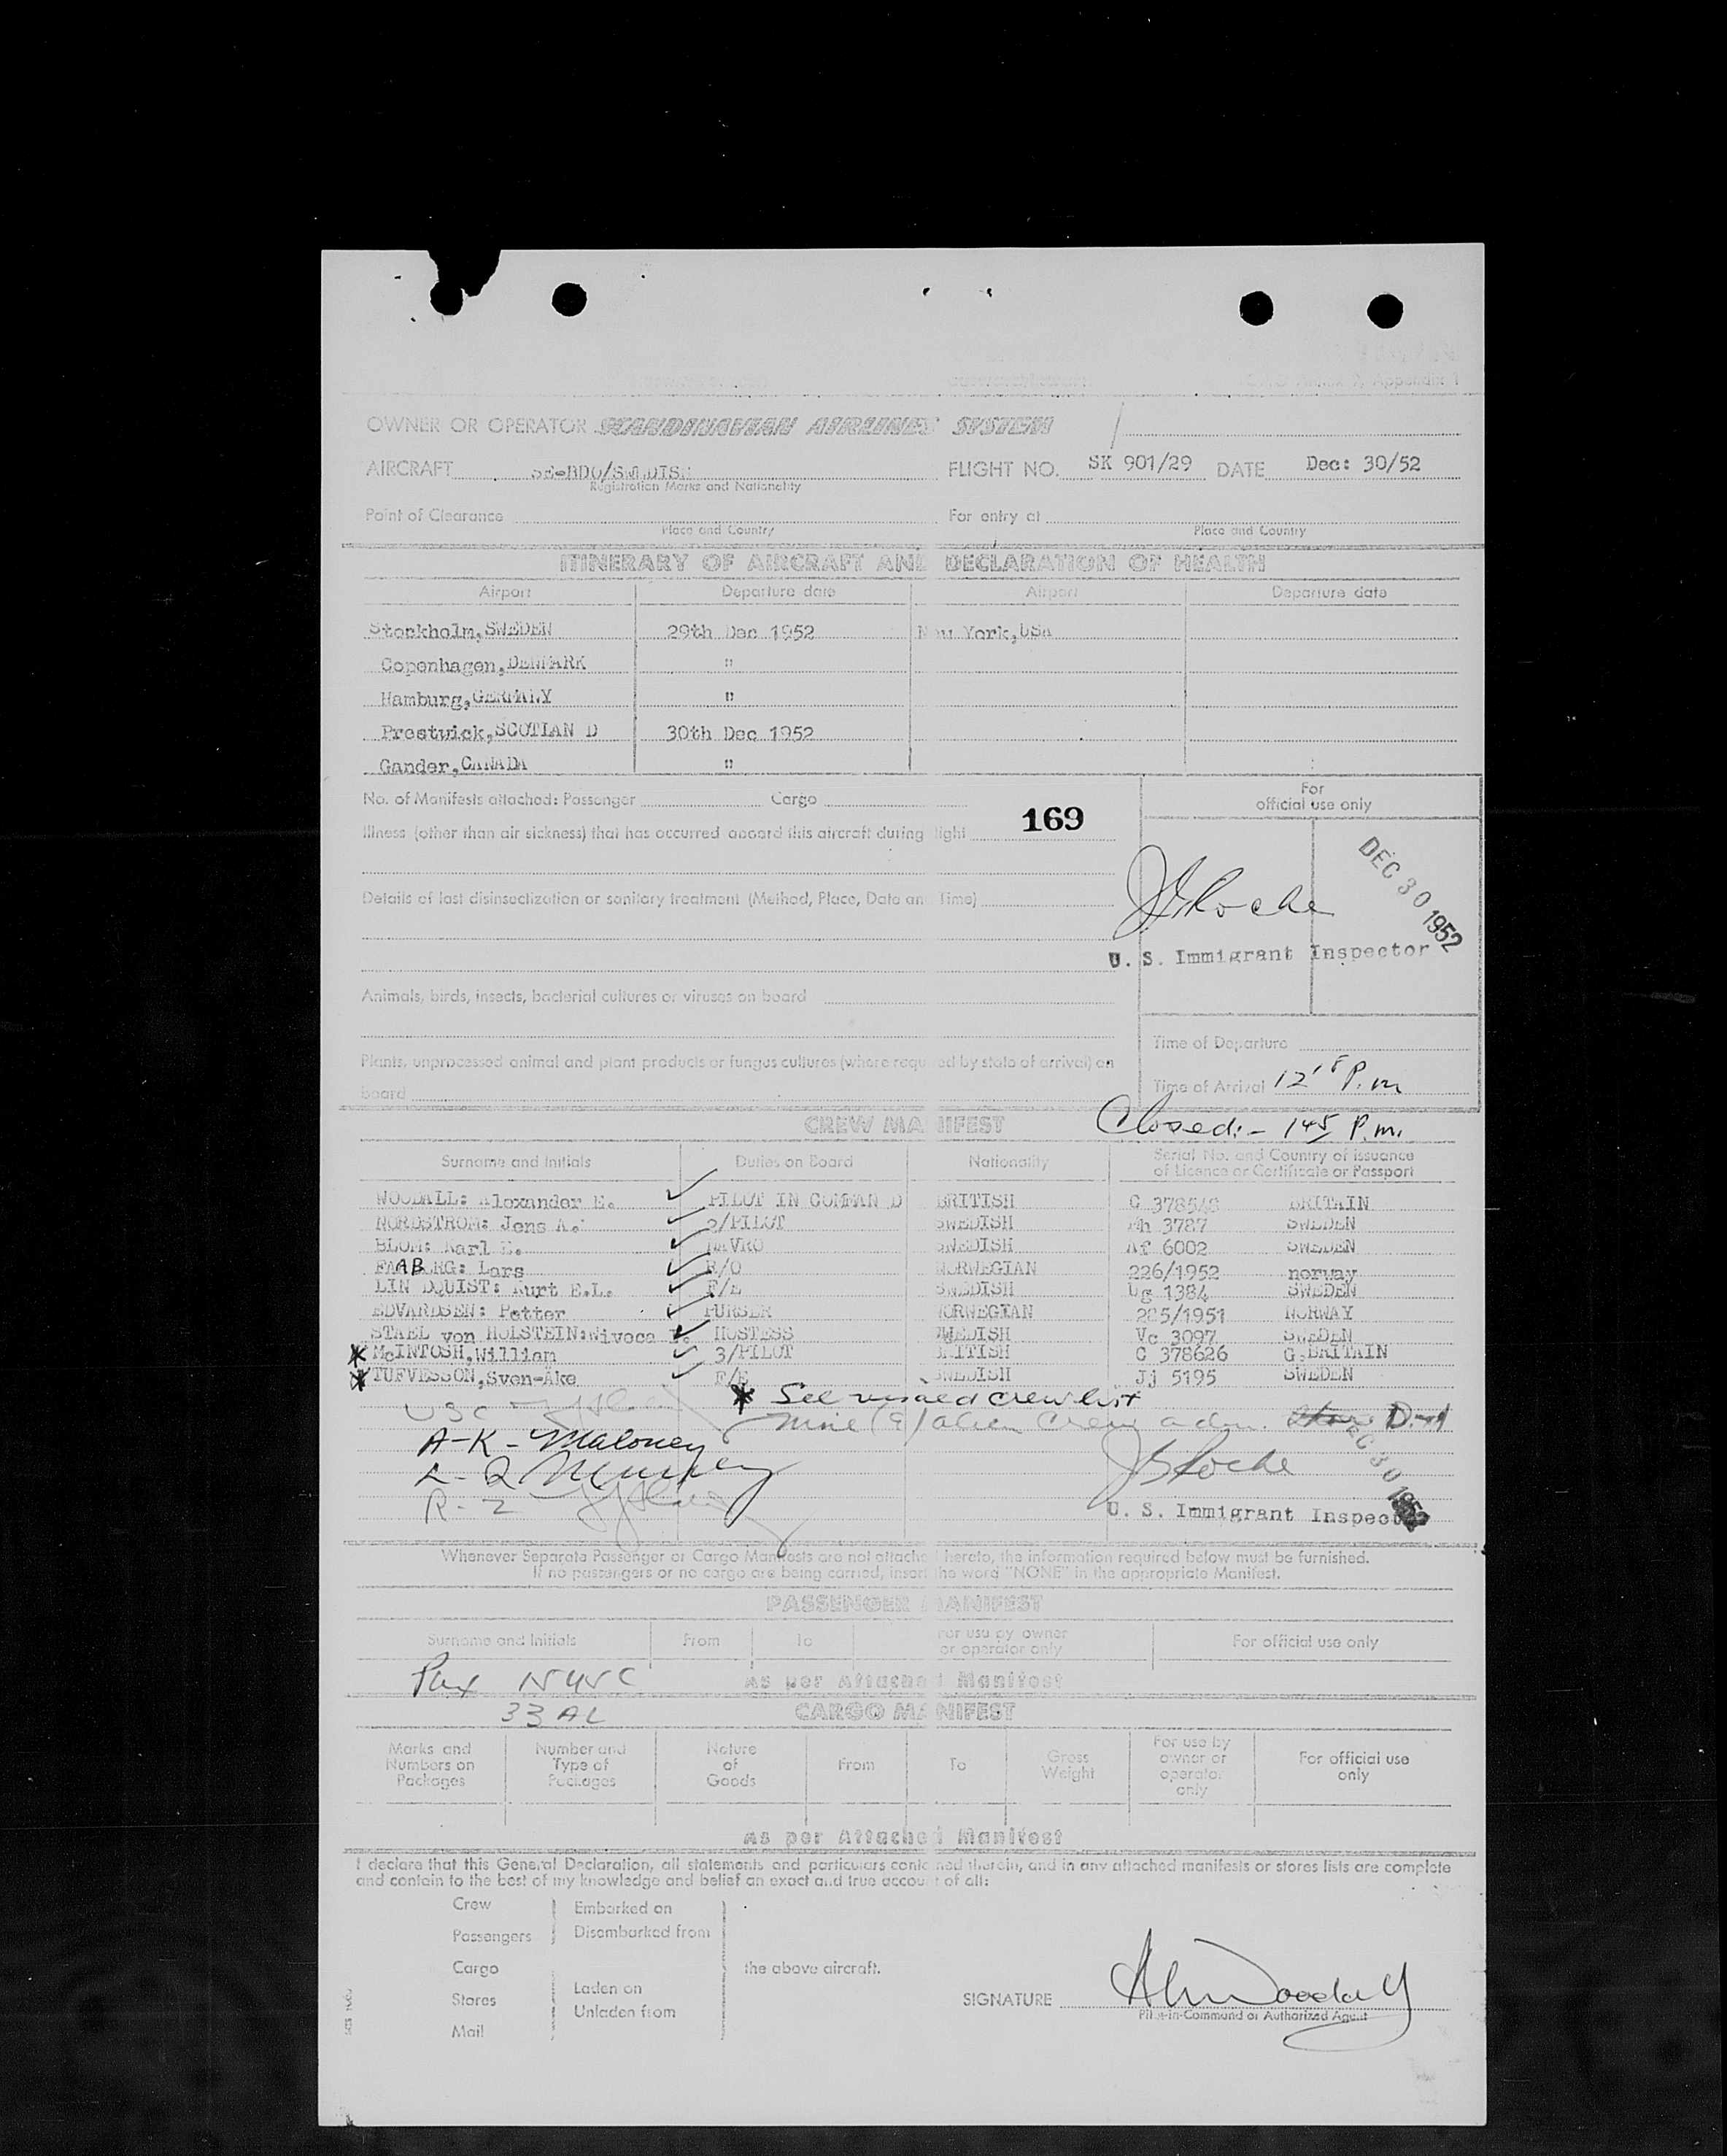 OWNER OR OPERATOR SCANDINAVIAN AIRLINES SYSTEM
AIRCRAFT SE-BDO/SWEDISH FLIGHT NO. SK 901/29 DATE Dec: 30/52
Registration Marks and Nationality
Point of Clearance For entry at
Place and Country Place and Country
ITINERARY OF AIRCRAFT AND DECLARATION OF HEALTH
Airport Departure date Airport Departure date
Stockholm, SWEDEN 29th Dec 1952 New York, USA
Copenhagen, DENMARK "
Hamburg, GERMANY "
Prestwick, SCOTLAN D 30th Dec 1952
Gander, CANADA "
No. of Manifests attached: Passenger Cargo
For official use only
Illness (other than air sickness) that has occurred aboard this aircraft during flight 169
DEC 30 1952
Details of last disinsectization or sanitary treatment (Method, Place, Date and Time)
J S Roche
U. S. Immigrant Inspector
Animals, birds, insects, bacterial cultures or viruses on board
Time of Departure
Plants, unprocessed animal and plant products or fungus cultures (where required by state of arrival) on
board
Time of Arrival 12 P.m
CREW MANIFEST Closed:- 145 P.m.
Surname and Initials Duties on Board Nationality Serial No. and Country of issuance of Licence or Certificate or Passport
WOODALL: Alexander E. PILOT IN COMMAN D BRITISH C 378546 BRITAIN
NORDSTROM: Jens A. 2/PILOT SWEDISH 3787 SWEDEN
BLOM: Karl E. NAVRO SWEDISH Af 6002 SWEDEN
FAABERG: Lars R/O NORWEGIAN 226/1952 norway
LIN DQUIST: Kurt E.L. F/E SWEDISH Ug 1384 SWEDEN
EDVARDSEN: Petter PURSER NORWEGIAN 285/1951 NORWAY
STAEL von HOLSTEIN: Wiveca HOSTESS SWEDISH Vc 3097 SWEDEN
* McINTOSH, William 3/PILOT BRITISH C 378626 G. BRITAIN
* TUFVESSON, Sven-Åke F/E SWEDISH Jj 5195 SWEDEN
* See visaed crew list
USC
Nine (9) alien Crew adm. D-1
A-K - Maloney
L-Q Murphy J S Roche DEC 30 1952
R-Z
U. S. Immigrant Inspector
Whenever Separate Passenger or Cargo Manifests are not attached hereto, the information required below must be furnished.
If no passengers or no cargo are being carried, insert the word "NONE" in the appropriate Manifest.
PASSENGER MANIFEST
Surname and Initials From To For use by owner or operator only For official use only
Pax 15 USC As per Attached Manifest
33 AL CARGO MANIFEST
Marks and Numbers on Packages Number and Type of Packages Nature of Goods From To Gross Weight For use by owner or operator only For official use only
As per Attached Manifest
I declare that this General Declaration, all statements and particulars contained therein, and in any attached manifests or stores lists are complete
and contain to the best of my knowledge and belief an exact and true account of all:
Crew Embarked on
Passengers Disembarked from
Cargo the above aircraft.
Stores Laden on
Unladen from
Mail
SIGNATURE A E Woodall
Pilot-in-Command or Authorized Agent